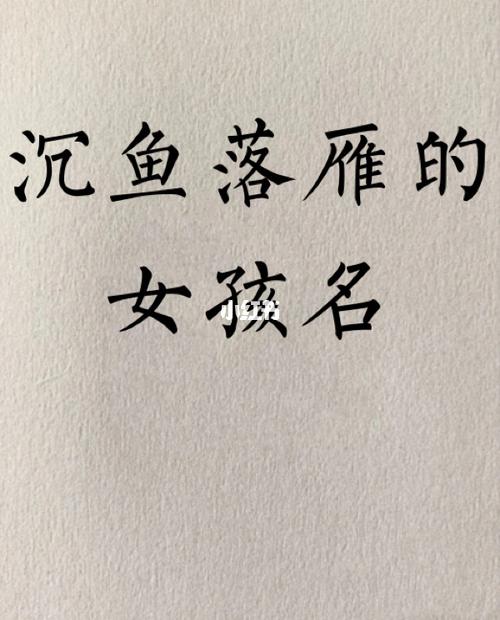 沉鱼落雁的
女孩名
小红书